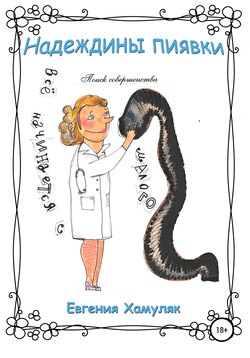 Надеждины пиявки
Поиск совершенства
Всё начинается с
малого
Евгения Хамуляк
18+